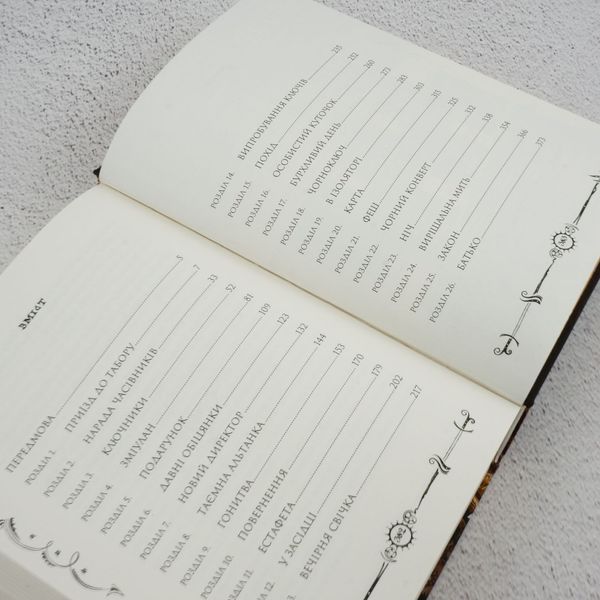 ЗМІСТ
ПЕРЕДМОВА 5
РОЗДІЛ 1. ПРИЇЗД ДО ТАБОРУ 7
РОЗДІЛ 2. НАРАДА ЧАСІВНИКІВ 33
РОЗДІЛ 3. КЛЮЧНИКИ 52
РОЗДІЛ 4. ЗМІУЛАН 81
РОЗДІЛ 5. ПОДАРУНОК 109
РОЗДІЛ 6. ДАВНІ ОБІЦЯНКИ 123
РОЗДІЛ 7. НОВИЙ ДИРЕКТОР 132
РОЗДІЛ 8. ТАЄМНА АЛЬТАНКА 144
РОЗДІЛ 9. ГОНИТВА 153
10. ПОВЕРНЕННЯ 170
11. ЕСТАФЕТА 179
12. У ЗАСІДЦІ 202
3. ВЕЧІРНЯ СВІЧКА 217
РОЗДІЛ 14. ВИПРОБУВАННЯ КЛЮЧІВ 235
РОЗДІЛ 15. ПОХІД 252
РОЗДІЛ 16. ОСОБИСТИЙ КУТОЧОК 260
РОЗДІЛ 17. БУРХЛИВИЙ ДЕНЬ 273
РОЗДІЛ 18. ЧОРНОКЛЮЧ 283
РОЗДІЛ 19. В ІЗОЛЯТОРІ 303
РОЗДІЛ 20. КАРТА 315
РОЗДІЛ 21. ФЕШ 325
РОЗДІЛ 22. ЧОРНИЙ КОНВЕРТ 332
РОЗДІЛ 23. НІЧ 338
РОЗДІЛ 24. ВИРІШАЛЬНА МИТЬ 354
РОЗДІЛ 25. ЗАКОН 366
РОЗДІЛ 26. БАТЬКО 373